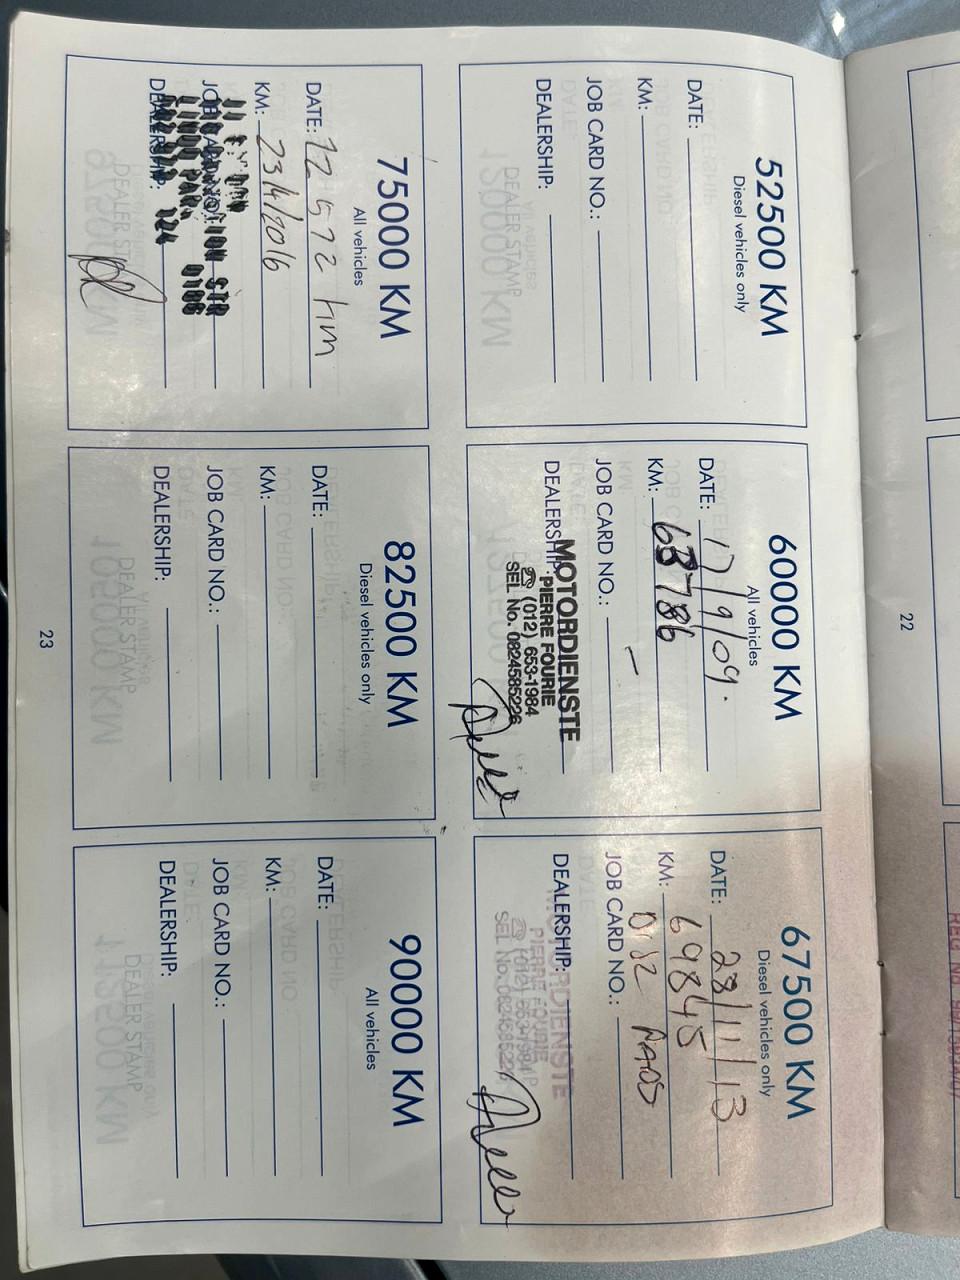 22
52500 KM
Diesel vehicles only
DATE:
KM:
JOB CARD NO.:
DEALERSHIP:
DEALER STAMP
60000 KM
All vehicles
DATE: 17/9/09.
KM: 63786
JOB CARD NO.: –
DEALERSHIP:
MOTORDIENSTE
PIERRE FOURIE
☎ (012) 653-1984
SEL No. 0824585226
67500 KM
Diesel vehicles only
DATE: 28/11/13
KM: 69845
JOB CARD NO.:
DEALERSHIP:
MOTORDIENSTE
PIERRE FOURIE
☎ (012) 653-1984
SEL No. 0824585226
75000 KM
All vehicles
DATE: 72 572 km
KM: 23/4/2016
JOB CARD NO.:
DEALERSHIP:
STR
0186
124
DEALER STAMP
82500 KM
Diesel vehicles only
DATE:
KM:
JOB CARD NO.:
DEALERSHIP:
DEALER STAMP
90000 KM
All vehicles
DATE:
KM:
JOB CARD NO.:
DEALERSHIP:
DEALER STAMP
23